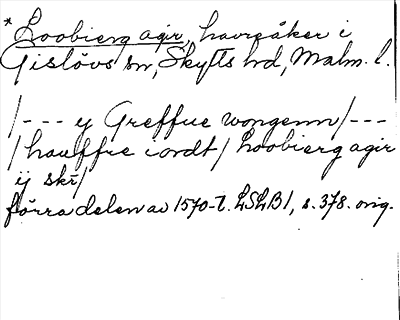 * Loobierg agir, havreåker i
Gislövs sn, Skytts hd, Malm. l.
/--- y Greffue wongenn/---
/hauffre iordt/ Loobierg agir
ij skr/
förra delen av 1570-t. LSLB1, s. 378. orig.